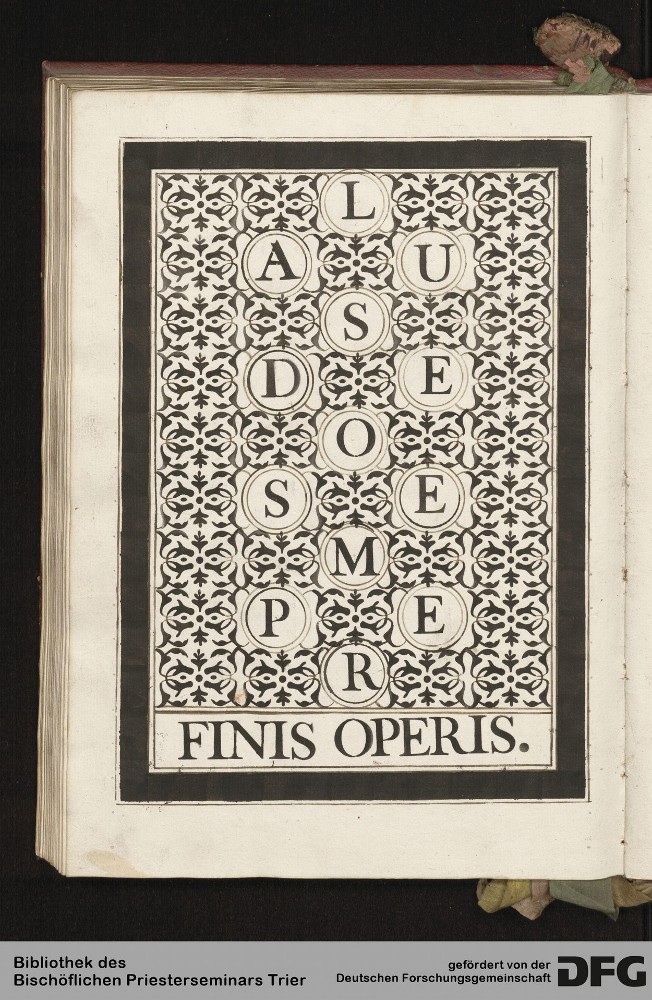 L
A U
S
D E
O
S E
M
P E
R
FINIS OPERIS.
Bibliothek des
Bischöflichen Priesterseminars Trier
gefördert von der
Deutschen Forschungsgemeinschaft
DFG